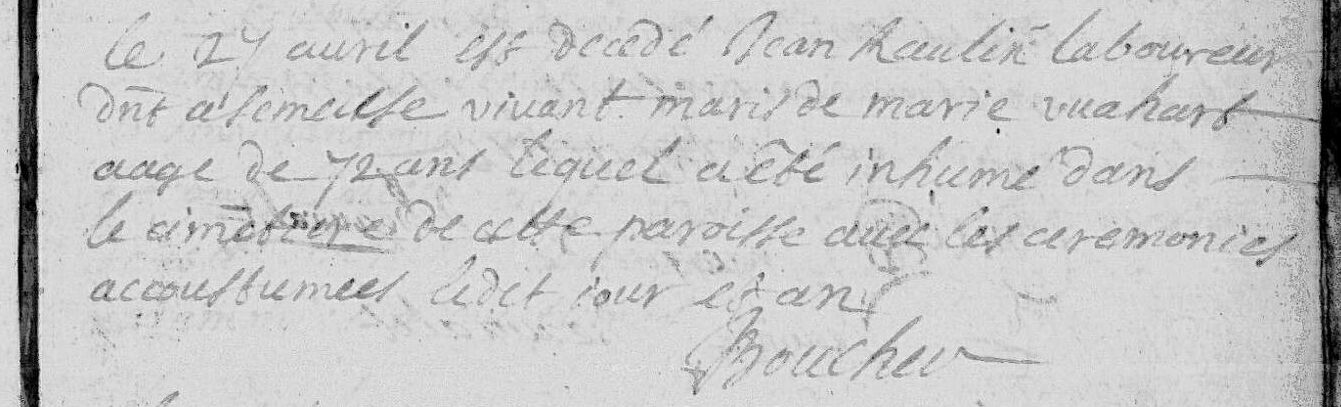 le 27 auril est decedé Jean Raulin laboureur
dnt a semeilse vivant maris de marie vuahart
aage de 72 ans lequel a êté inhumé dans
le cimetiere de cette paroisse auec les ceremonies
accoustumees ledit iour et an
Boucher